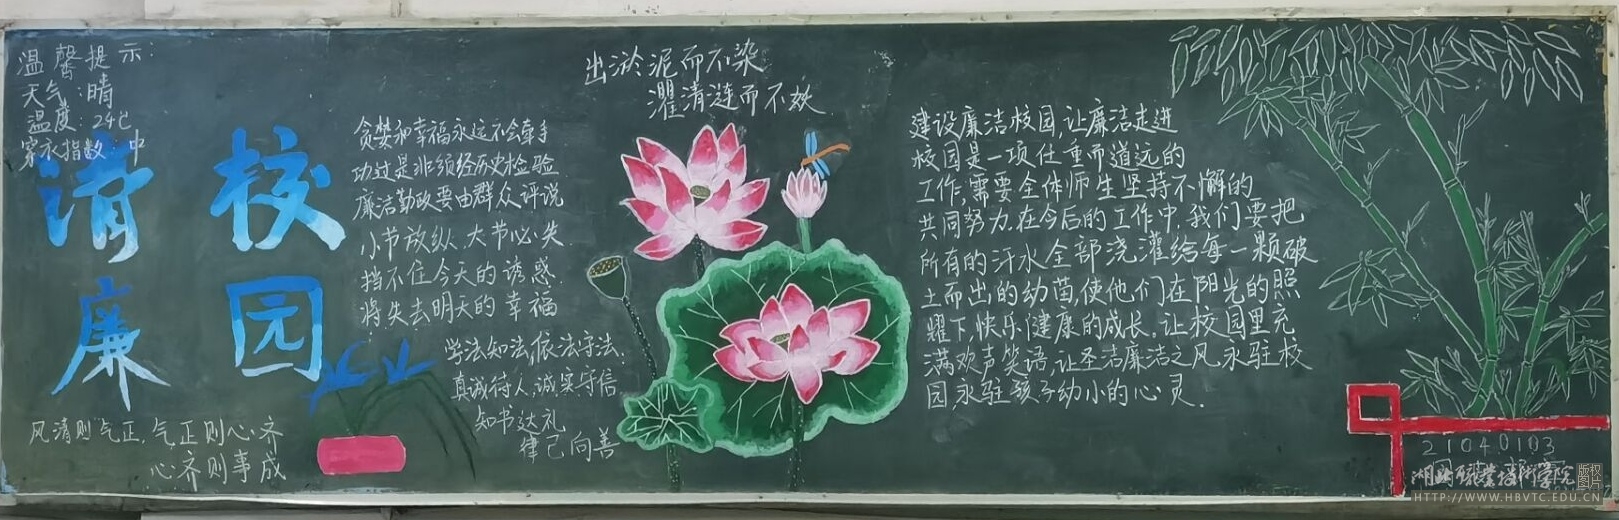 温馨提示:
天气:晴
温度:24℃
穿衣指数:中
清廉
校园
风清则气正,气正则心齐
心齐则事成
贪婪和幸福永远不会牵手
功过是非须经历史检验.
廉洁勤政要由群众评说
小节放纵.大节必失.
挡不住今天的诱惑.
将失去明天的幸福
学法知法,依法守法.
真诚待人,诚实守信
知书达礼
律己向善
出淤泥而不染
濯清涟而不妖
建设廉洁校园,让廉洁走进
校园是一项任重而道远的
工作,需要全体师生坚持不懈的
共同努力.在今后的工作中,我们要把
所有的汗水全部浇灌给每一颗破
土而出的幼苗,使他们在阳光的照
耀下,快乐健康的成长.让校园里充
满欢声笑语,让圣洁廉洁之风永驻校
园,永驻孩子幼小的心灵.
21040103
职业技术学院
版权图片
HTTP://WWW.HBVTC.EDU.CN